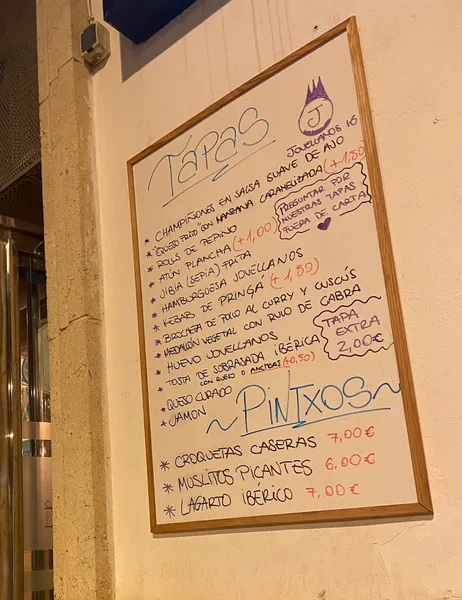 TAPAS
J
JOVELLANOS 16
* CHAMPIÑONES EN SALSA SUAVE DE AJO
* "QUESO FRITO" CON MANZANA CARAMELIZADA (+1,50)
* ROLLS DE PEPINO
* ATÚN PLANCHA (+1,00)
* JIBIA (SEPIA) FRITA
* HAMBURGUESA JOVELLANOS
* KEBAB DE PRINGÁ (+1,50)
* BROCHETA DE POLLO AL CURRY Y CUSCÚS
* MEDALLÓN VEGETAL CON RULO DE CABRA
* HUEVO JOVELLANOS
* TOSTA DE SOBRASADA IBÉRICA
CON QUESO O ANCHOAS (+0,50)
* QUESO CURADO
* JAMON
PREGUNTAR POR
NUESTRAS TAPAS
FUERA DE CARTA
TAPA
EXTRA
2,00€
~PINTXOS~
* CROQUETAS CASERAS 7,00€
* MUSLITOS PICANTES 6,00€
* LAGARTO IBÉRICO 7,00€